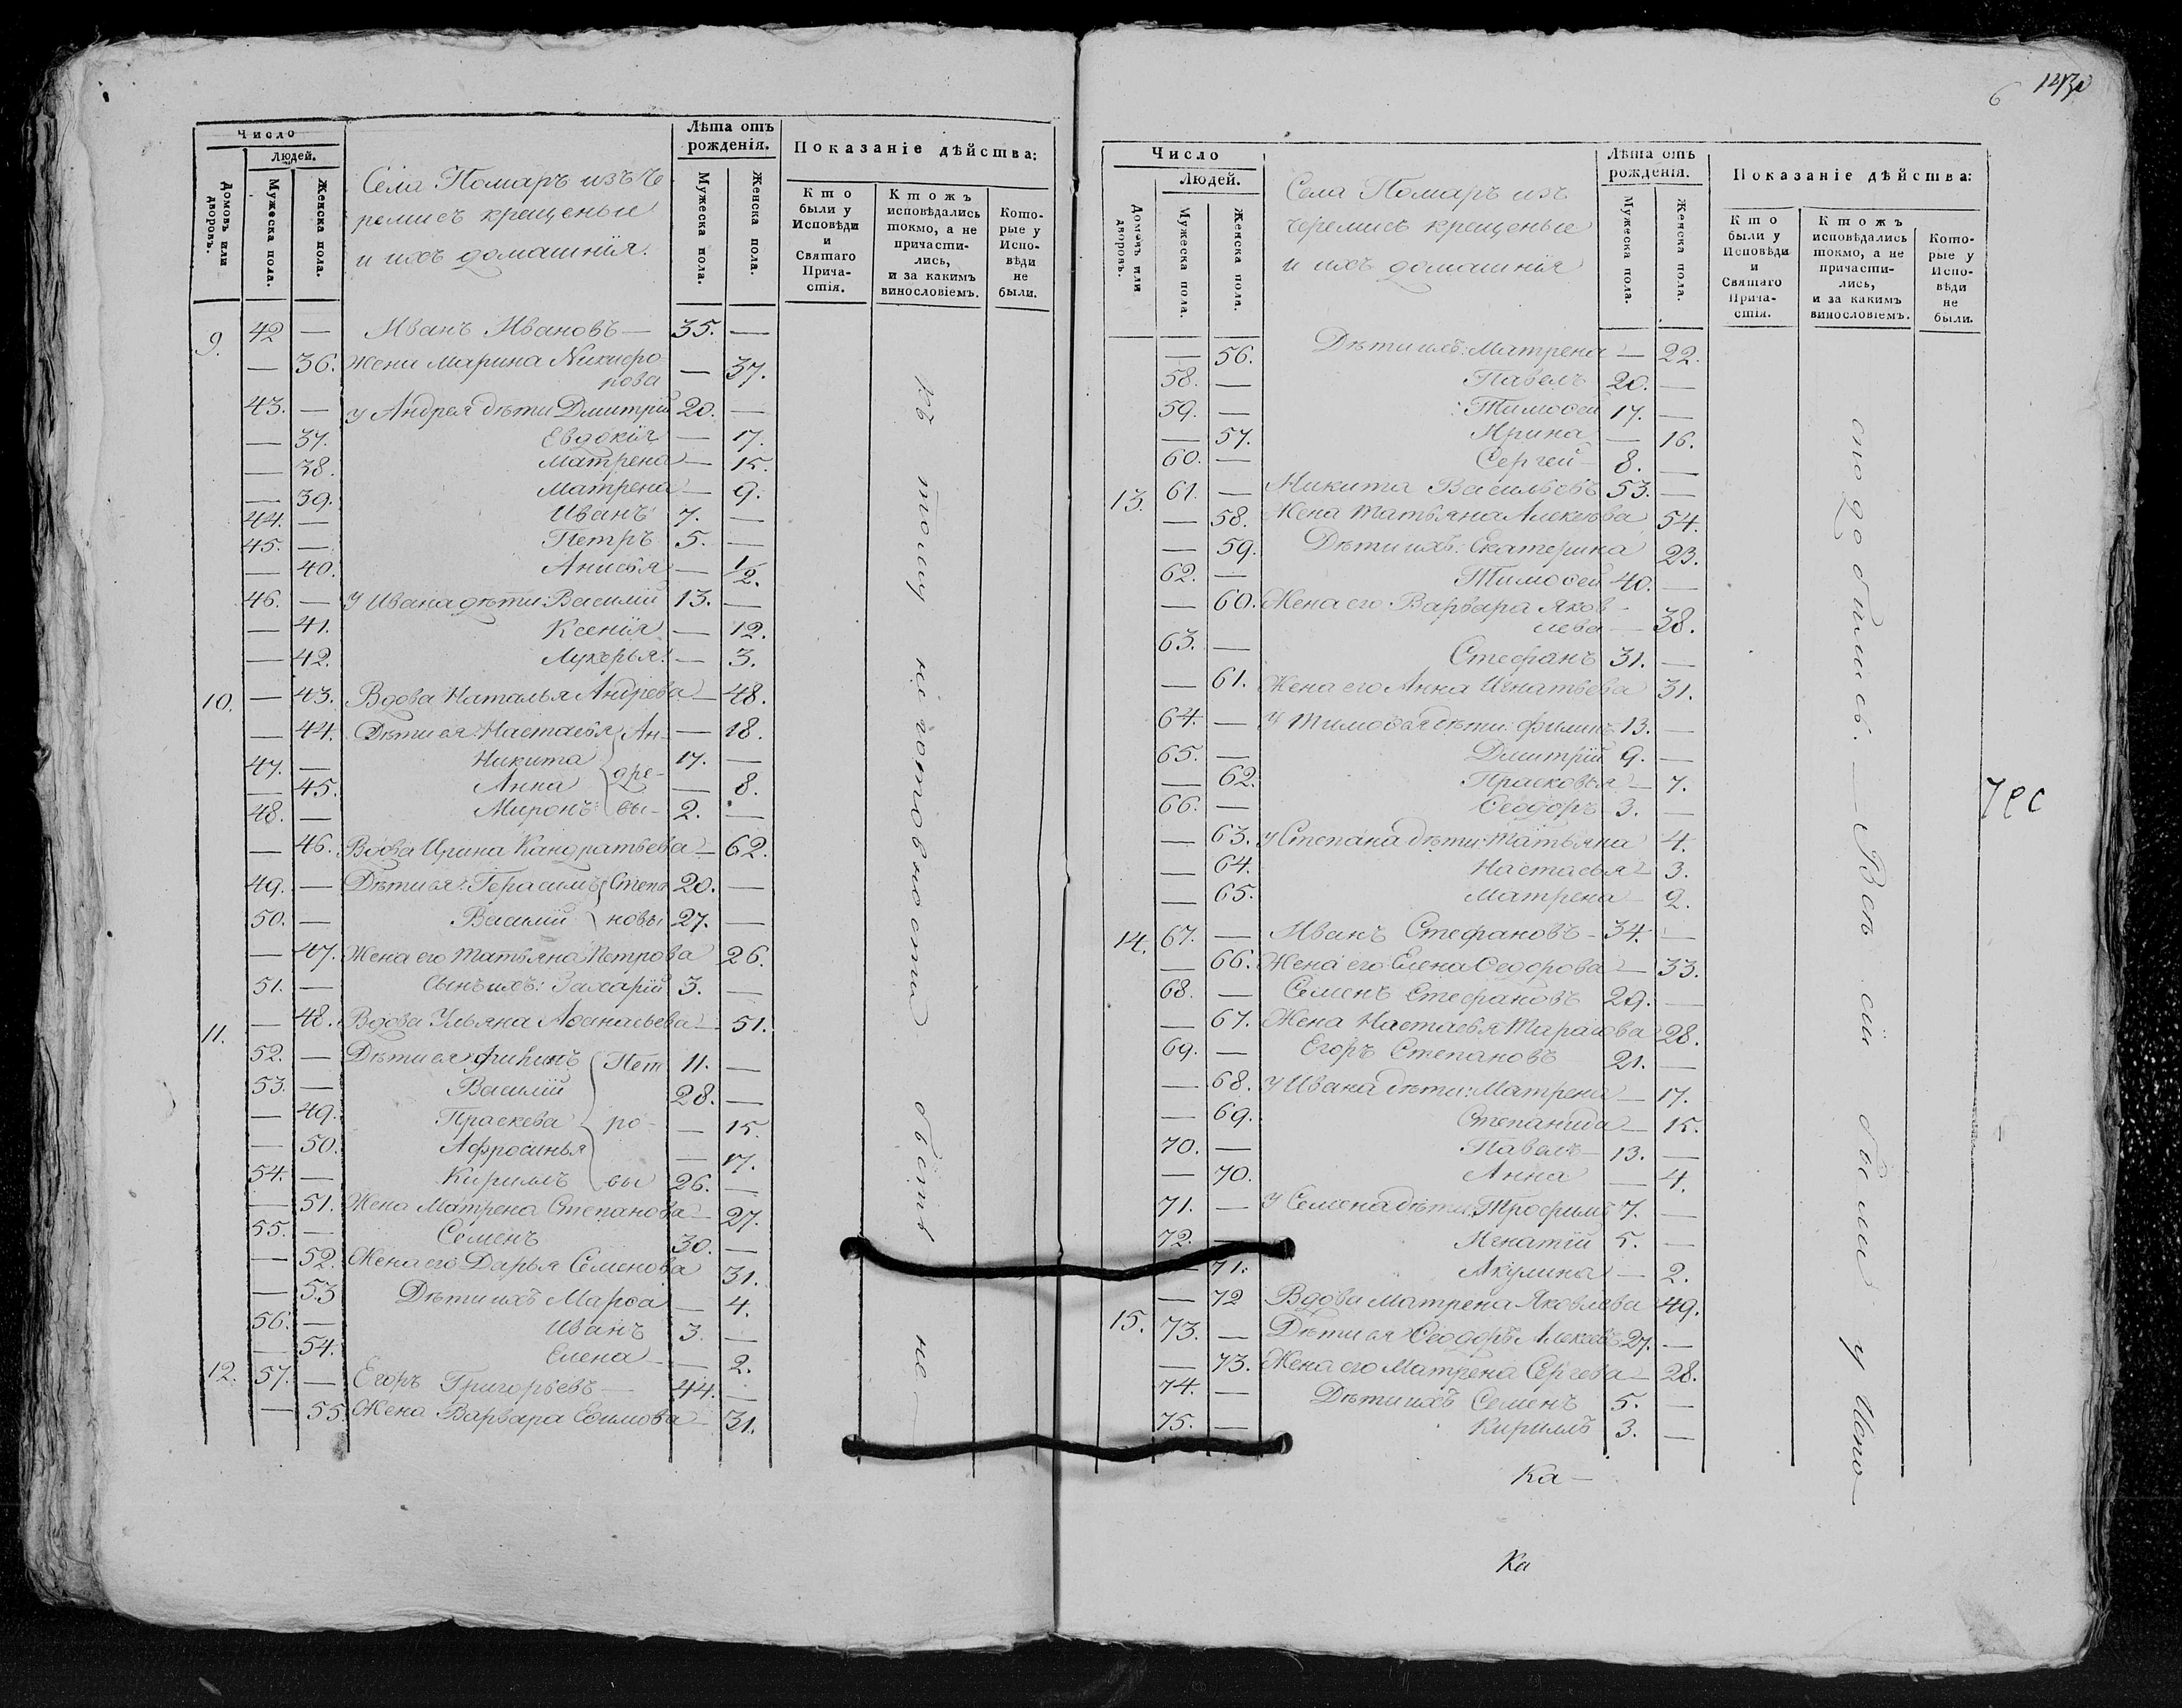 Число
Людей.
Домовъ или дворовъ.
Мужеска пола.
Женска пола.
Села Помаръ изъ че
ремисъ крещеныи
и ихъ домашнія.
Лѣта отъ рожденія.
Мужеска пола.
Женска пола.
Показаніе дѣйства:
Кто были у Исповѣди и Святаго Прича-стія.
Ктожъ исповѣдались токмо, а не причасти-лись, и за какимъ винословіемъ.
Кото-рые у Испо-вѣди не были.
9. 42 — Иванъ Ивановъ — 35. —
— 36. Жена Марина Никифо
рова — 37.
43. — у Андрея дѣти Дмитрій 20. —
— 37. Евдокія — 17.
— 38. Матрена — 15.
— 39. Матрена — 9.
44. — Иванъ 7. —
45. — Петръ 5. —
— 40. Анисья — 1/2.
46. — У Ивана дѣти: Василій 13. —
— 41. Ксенія — 12.
— 42. Лукерья — 3.
10. — 43. Вдова Наталья Андреева — 48.
— 44. Дѣти ея: Настасья Ан- — 18.
47. — Никита 17. —
— 45. Анна дре- — 8.
48. — Миронъ вы- 2. —
— 46. Вдова Ирина Кандратьева — 62.
49. — Дѣти ея: Герасимъ Степа 20. —
50. — Василій новы 27. —
— 47. Жена его Татьяна Петрова 26.
51. — Сынъ ихъ: Захарій 3. —
11. — 48. Вдова Ульяна Аѳанасьева — 51.
52. — Дѣти ея Филипъ Пет 11. —
53. — Василій 28. —
— 49. Праскева ро- — 15.
— 50. Афросинья — 17.
54. — Кирилъ вы 26. —
— 51. Жена Матрена Степанова — 27.
55. — Семенъ 30. —
— 52. Жена его Дарья Семенова 31.
— 53 Дѣти ихъ Марѳа — 4.
56. — Иванъ 3. —
— 54. Елена — 2.
12. 57. — Егоръ Григорьевъ — 44. —
— 55 Жена Варвара Еѳимова — 31.
къ тому не готовности объятъ не —
6 143
Число
Людей.
Домовъ или дворовъ.
Мужеска пола.
Женска пола.
Села Помаръ изъ
черемисъ крещеные
и ихъ домашнія
Лѣта отъ рожденія.
Мужеска пола.
Женска пола.
Показаніе дѣйства:
Кто были у Исповѣди и Святаго Прича-стія.
Ктожъ исповѣдались токмо, а не причасти-лись, и за какимъ винословіемъ.
Кото-рые у Испо-вѣди не были.
— 56. Дѣти ихъ: Матрена — 22.
58. — Павелъ 20. —
59. — Тимоѳей 17. —
— 57. Ирина — 16.
60. — Сергей — 8. —
13. 61. — Никита Васильевъ 53. —
— 58. Жена Татьяна Алексѣва 54.
— 59. Дѣти ихъ: Екатерина 23.
62. — Тимоѳей 40. —
— 60. Жена его Варвара Яков-
лева — 38.
63. — Стефанъ 31. —
— 61. Жена его Анна Игнатьева 31.
64. — У Тимоѳея дѣти: Филипъ 13. —
65. — Дмитрій 9. —
— 62. Прасковья — 7.
66. — Ѳеодоръ 3. —
— 63. у Степана дѣти: Татьяна 4.
— 64. Настасья — 3.
— 65. Матрена — 2.
14. 67. — Иванъ Стефановъ — 34. —
— 66. Жена его Елена Ѳеодорова — 33.
68. — Семенъ Стефановъ 29. —
— 67. Жена Настасья Тарасова 28.
69. — Егоръ Степановъ 21. —
— 68. У Ивана дѣти: Матрена — 17.
— 69. Степанида — 15.
70. — Павелъ — 13. —
— 70. Анна — 4.
71. — У Семена дѣти: Трофимъ 7. —
72. — Игнатій 5. —
— 71. Акулина — 2.
— 72 Вдова Матрена Яковлева 49.
15. 73. — Дѣти ея Ѳеодоръ Алексѣевъ 27. —
— 73. Жена его Матрена Сергеева — 28.
74. — Дѣти ихъ Семенъ 5. —
75. — Кирилъ 3. —
сподобились. — Всѣ сіи были у Испо-
Ка —
Ка